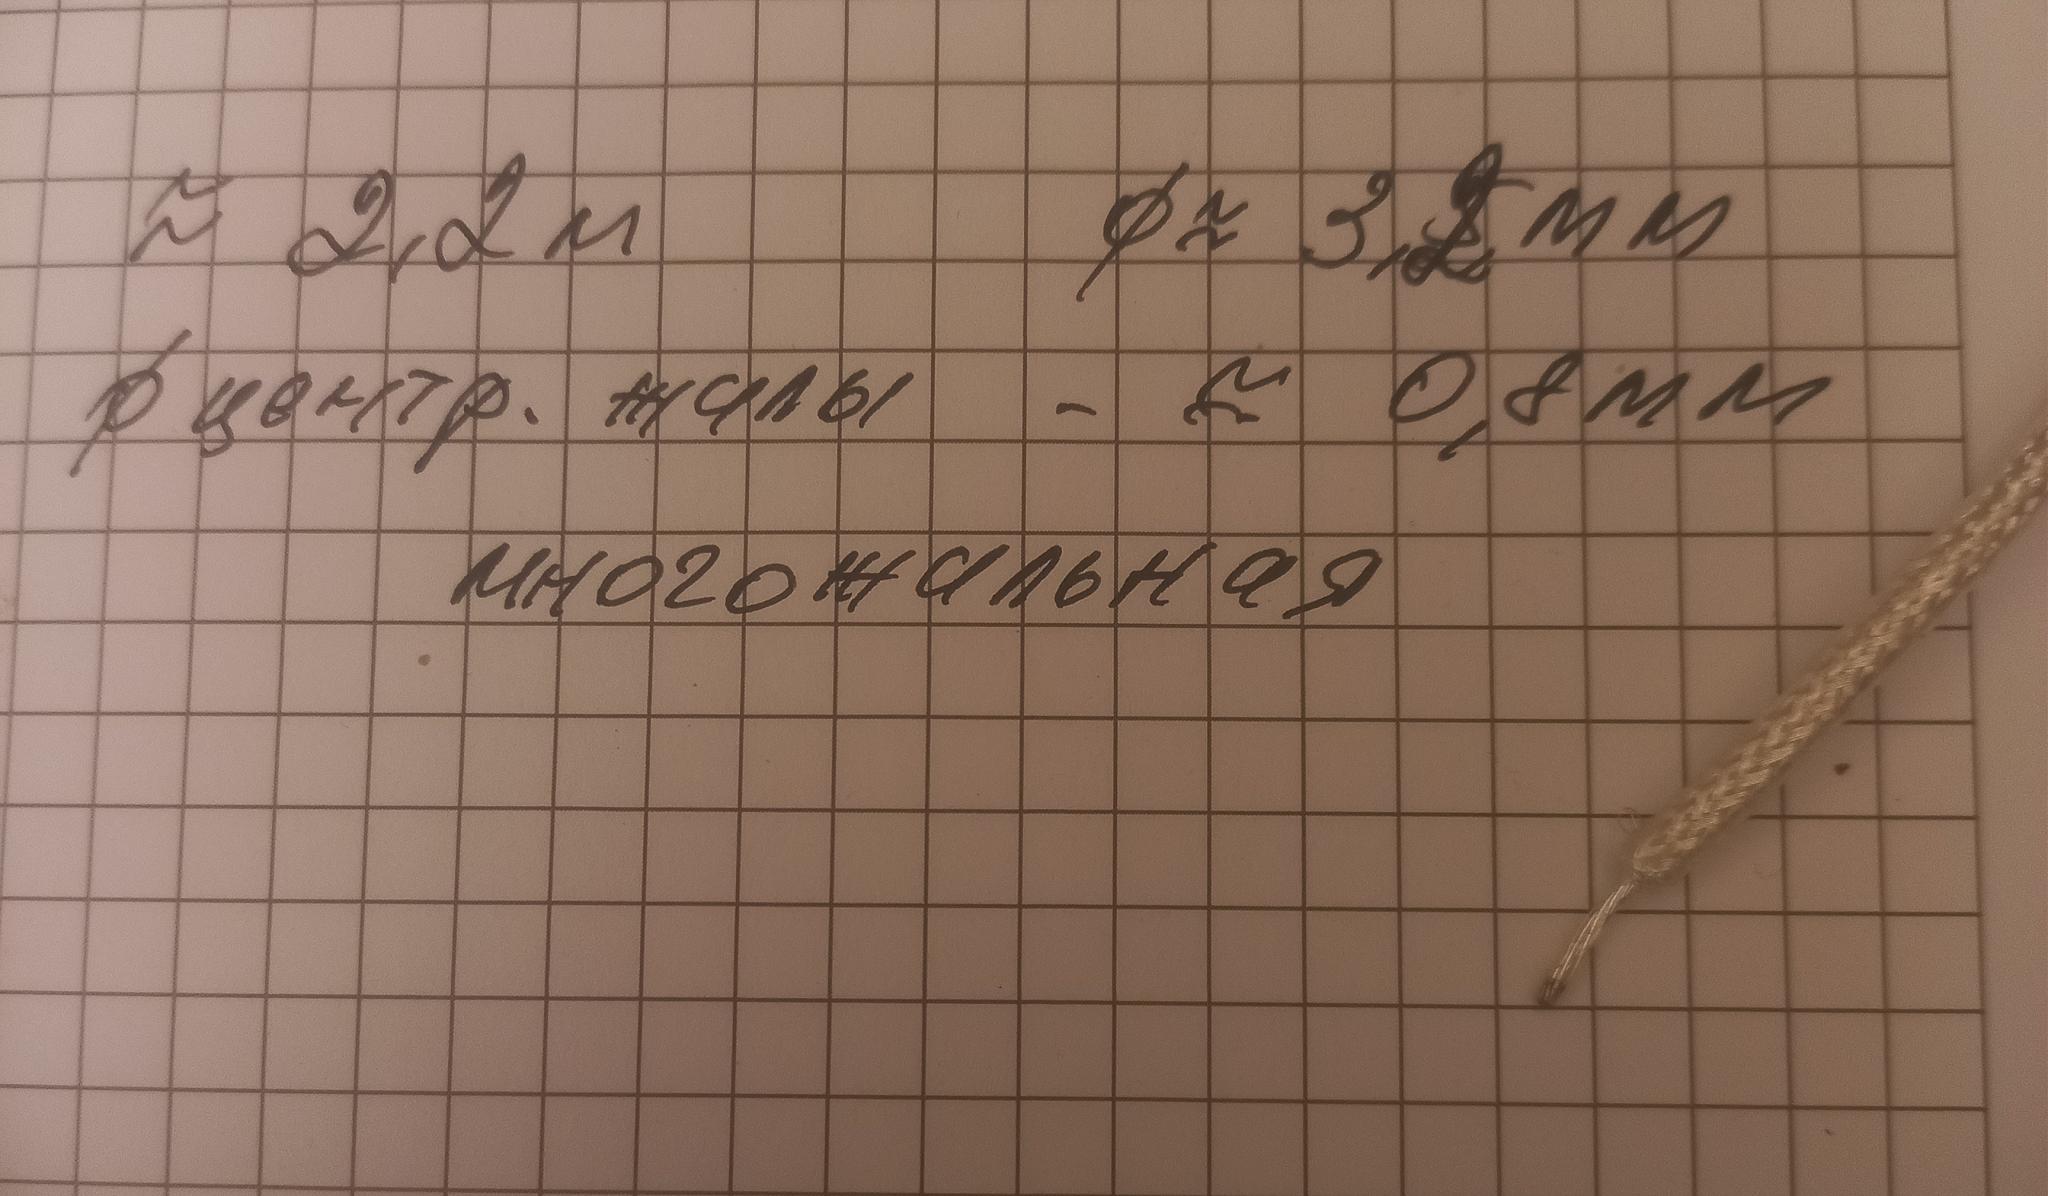 ≈ 2,2 м ø ≈ 3,2 мм
ø центр. жилы - ≈ 0,8 мм
многожильная